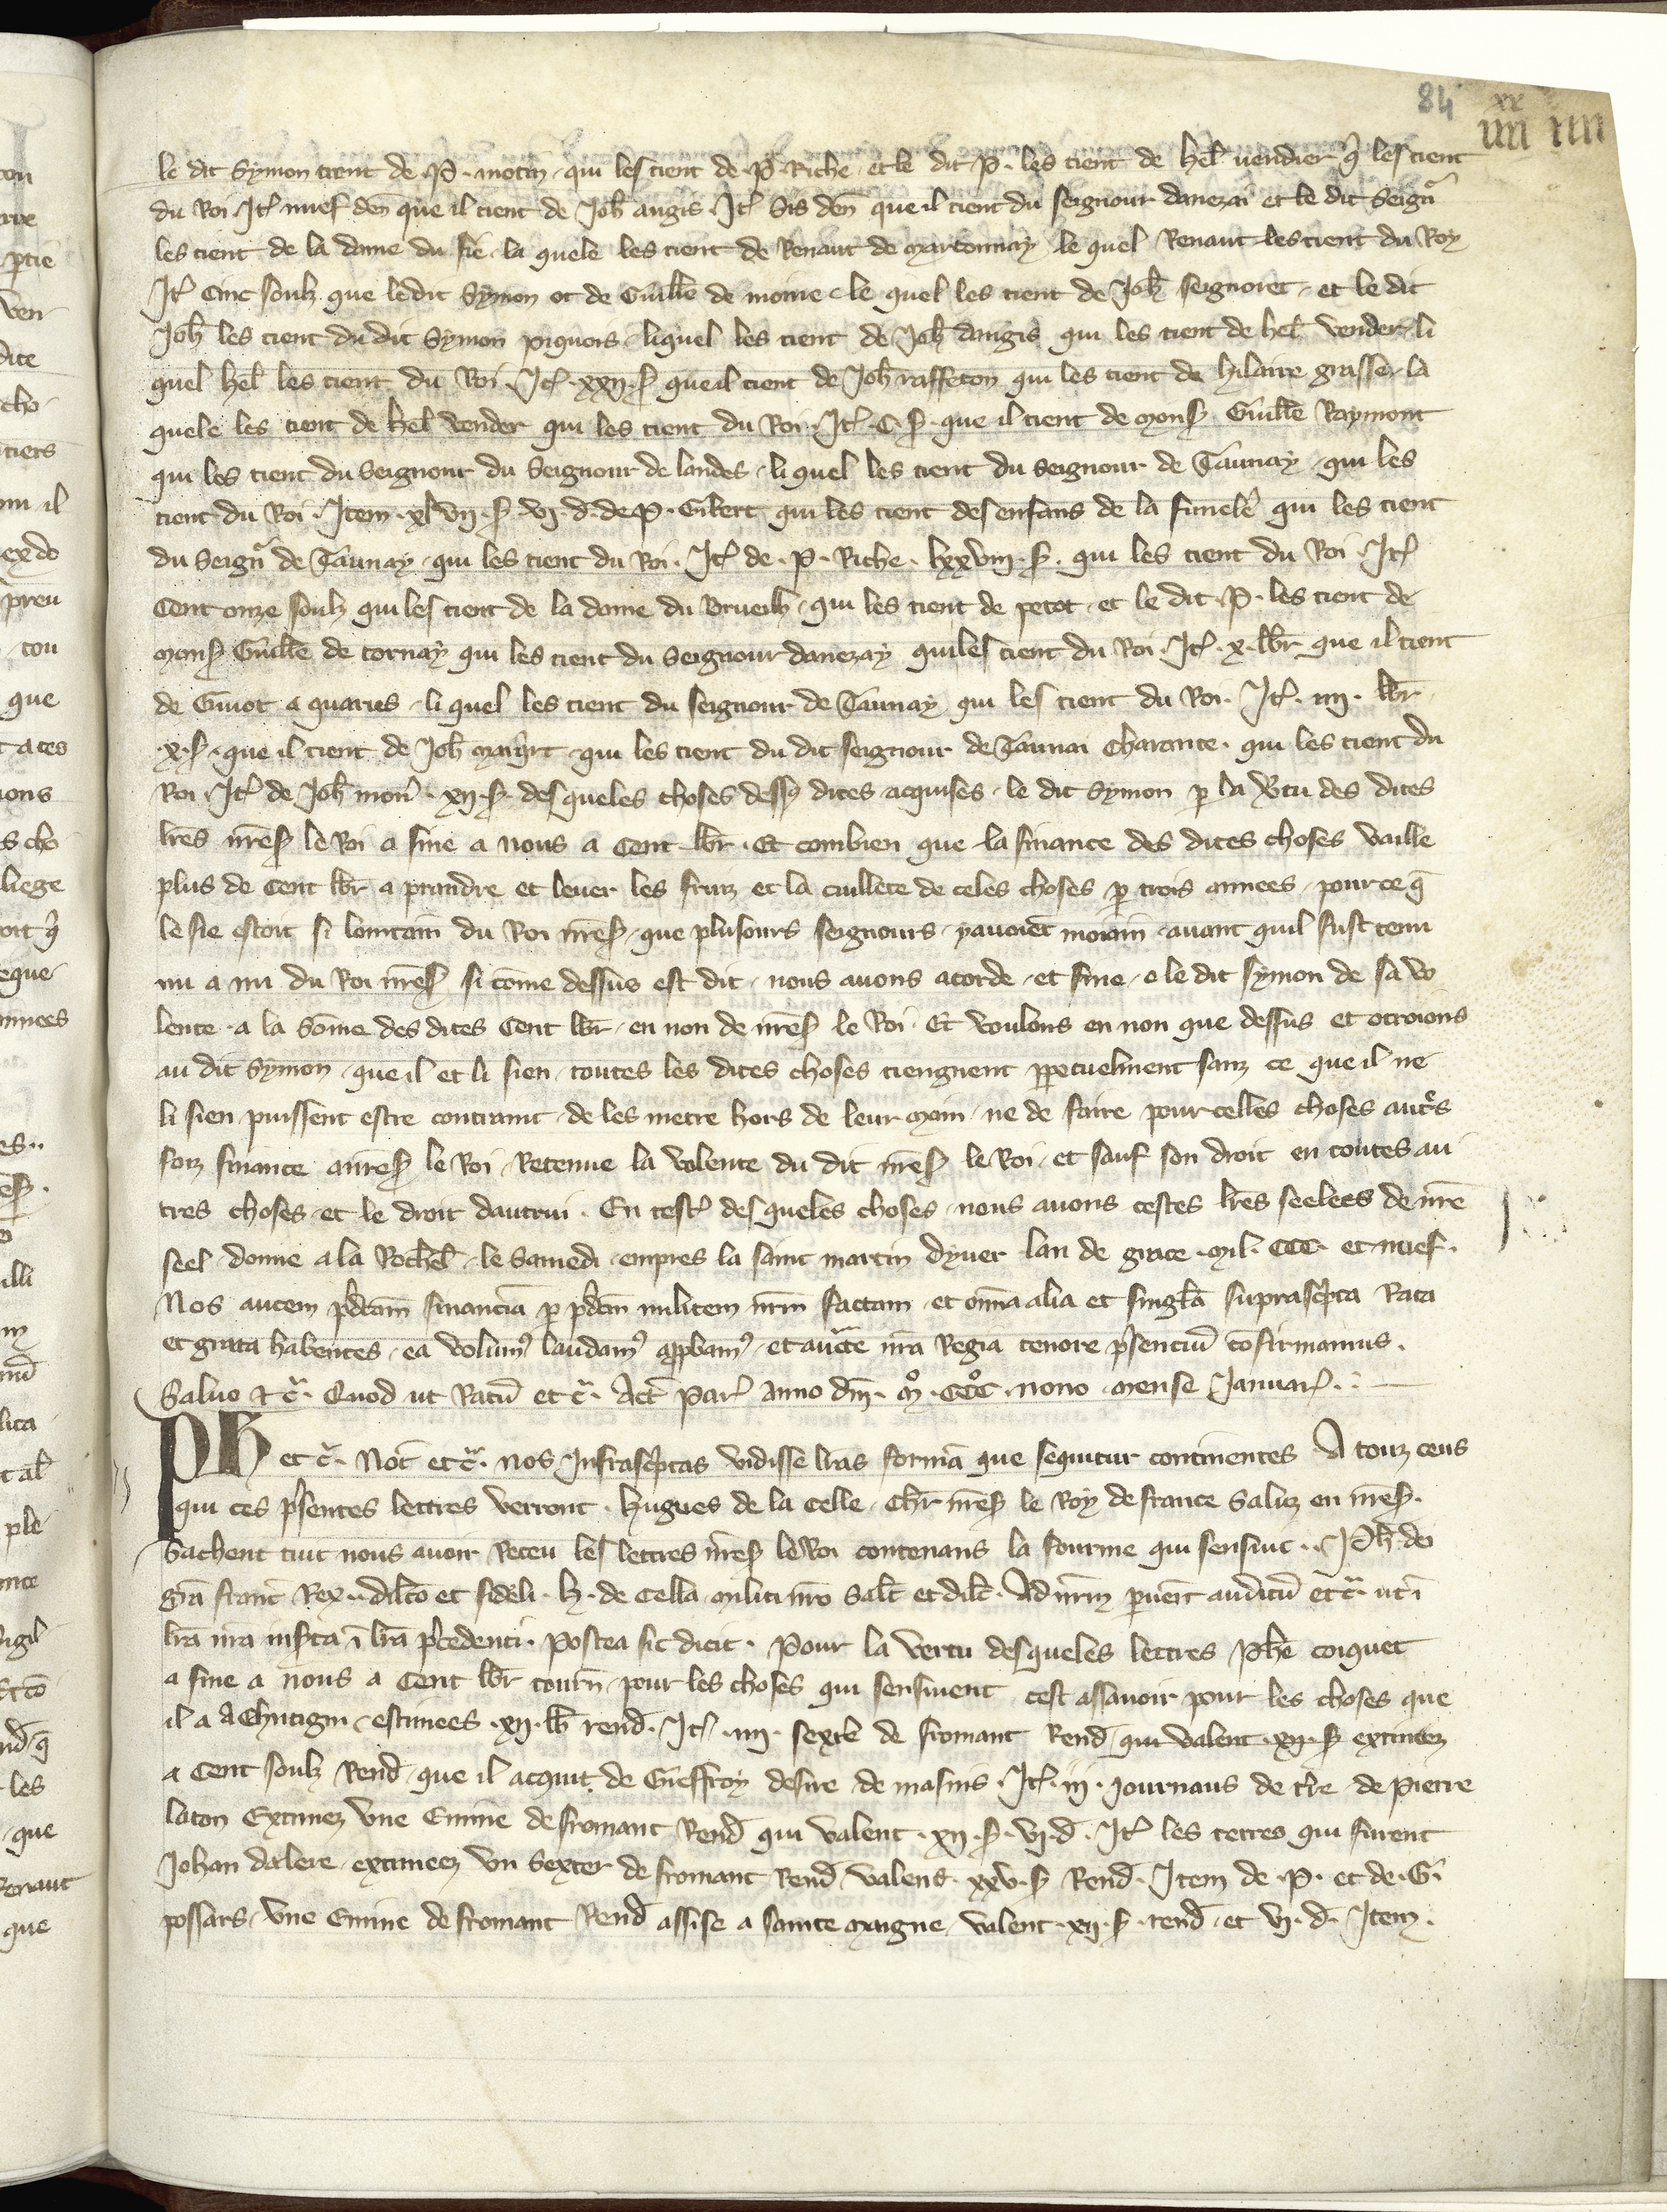 84
xx
iiii iiii
le dit Symon tient de .P. motin . qui les tient de .P. Riche . et le dit .P. les tient de Hel̄ vendier q̄ les tient
du Roi . It̄ nuef den̄ que il tient de Joh̄ angis . It̄ sis den̄ que il tient du seignour danezai et le dit Seign̄
les tient de la dame du fie . la quele les tient de Renaut de martonnay le quel Renaut les tient du Roy
It̄ Cinc soulz que le dit Symon ot de Guill̄e de moine . le quel les tient de Joh̄ seignoret . et le dit
Joh̄ les tient du dit Symon piquois . liquel les tient de Joh̄ dangis qui les tient de hel̄ vender . li
quel hel̄ les tient du Roi . It̄ . xxii . s̄ que il tient de Joh̄ raffeton qui les tient de hilaire grasse . la
quele les tient de hel̄ vender qui les tient du Roi . It̄ . C . s̄ . que il tient de mons̄ Guill̄e Raymont
qui les tient du Seignour du Seignour de landes . li quel les tient du seignour de Taunay . qui les
tient du Roi . Item . xlvii . s̄ . vi . d . de P . Gibert qui les tient des enfans de la fumel̄e qui les tient
du Seign̄ de Taunay . qui les tient du Roi . It̄ de . P . Riche . lxxviii . s̄ . qui les tient du Roi . It̄
Cent onze soulz qui les tient de la dame du Brueilh . qui les tient de petot . et le dit . P . les tient de
mons̄ Guill̄e de tornay qui les tient du Seignour danezay qui les tient du Roi . It̄ . x . lb̄r que il tient
de Guiot a quarres . li quel les tient du seignour de Taunay qui les tient du Roi . It̄ . iiii . lb̄r
. x . s̄ . que il tient de Joh̄ . qui les tient du dit seignour de Taunai Charante . qui les tient du
Roi . It̄ de Joh̄ mon̄ . xii . s̄ . des queles choses dess9 dites acquises . le dit Symon p̄ la v̄tu des dites
lr̄es n̄res̄ le Roi a fine a nous a Cent lb̄r . Et combien que la finance des dites choses vaille
plus de Cent lb̄r a prandre et lever les fruiz et la cuillete de celes choses p̄ trois annees . pource q̄
le fie estoit si lointain du Roi n̄res̄ . que plusours seignours . y avoiēt moiain . avant quil fust tenu
nu a nu du Roi n̄res̄ si cōme dessus est dit . nous avons acorde . et fine . o le dit symon de sa vo
lente . a la sōme des dites Cent lb̄r . en non de n̄res̄ le Roi . Et voulons en non que dessus et otroions
au dit Symon . que il et li sien . toutes les dites choses tiengnent ppetuelment sanz ce que il ne
li sien puissent estre contraint . de les metre hors de leur main . ne de faire pour celles choses aut̄s
forz finance a n̄res̄ le Roi . Retenue la volente du dit n̄res̄ le Roi . et sauf son droit en toutes au
tres choses . et le droit dautrui . En test̄ des queles choses . nous avons cestes lr̄es seelees de n̄re
seel . donne a la Rochel̄ . le Samedi . empres la saint martin dyver lan de grace . mil . CCC . et nuef .
Nos autem p̄dcām financiā p̄ p̄dcm̄ militem n̄rm factam et om̄ia alia et singl̄a suprasc̄pta Rata
et grata habentes . ea volum9 laudam9 app̄bam9 . et auct̄e n̄ra Regia tenore p̄sentiū cōfirmamus .
Salvo et c̄ . Quod ut Ratū et c̄ . Act̄ Par̄ anno dn̄i . mº . CCCº . nono . mense Januar̄ .
Ph̄ et c̄ . Not̄ et c̄ . nos Infrasc̄ptas vidisse lr̄as formā que sequitur continentes A touz ceus
qui ces p̄sentes lettres verront . hugues de la Celle . chr̄ n̄res̄ le Roy de france Saluz en n̄res̄ .
Sachent tuit nous avoir Receu les lettres n̄res̄ le Roi contenans la fourme qui sensuit . Ph̄ dei
grā franc̄ Rex . dilc̄o et fideli . h . de Cella militi n̄ro Salt̄ et dilc̄ . Ad n̄rm pvenit auditū et c̄ . ut ī
lr̄a n̄ra inserta ī lr̄a p̄cedenti . Postea sic dicit . Pour la vertu des queles lettres Ph̄e coiquet
a fine a nous a Cent lb̄r tourn̄ . pour les choses qui sensuient cest assavoir pour les choses que
il a a Chutigni . estimees . xii . lb̄ rend̄ . It̄ . iiii . sext̄ de fromant Rend̄ . qui valent . xii . s̄ extimeez
a Cent soulz Rend̄ . que il acquit de Gieffroy desire de masins . It̄ . iii . journaus de t̄re de Pierre
laton Extimez une Emine de fromant Rend̄ qui valent . xii . s̄ . vi . d . It̄ les terres qui furent
Johan dalere . extimeez un Sexter de fromant Rend̄ valens . xxv . s̄ Rend̄ . Item de . P . et de . G .
possars . une Emine de fromant Rend̄ assise a sainte maigne . valent . xii . s̄ . rend̄ . et vi . d . Item .